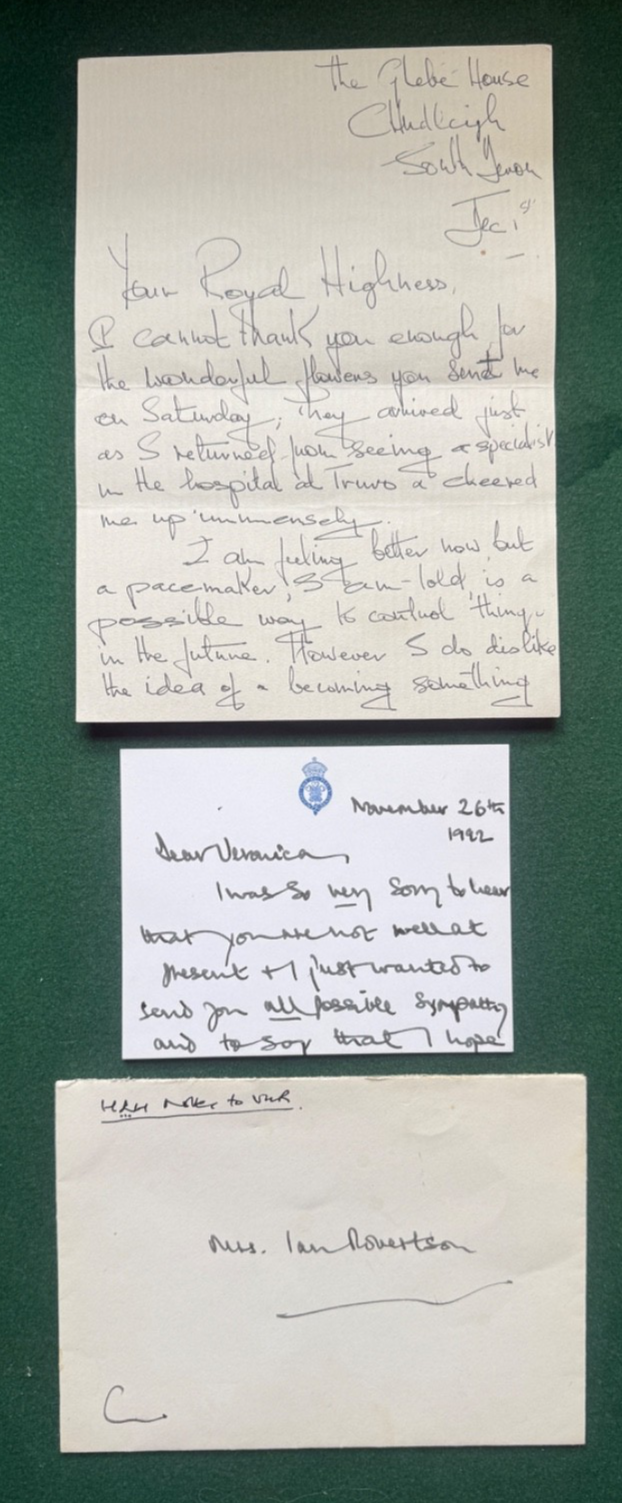 The Glebe House
Chudleigh
South Devon
Dec 1st
Your Royal Highness,
I cannot thank you enough for
the wonderful flowers you sent me
on Saturday; they arrived just
as I returned from seeing a specialist
in the hospital at Truro & cheered
me up immensely.
I am feeling better now, but
a pacemaker, I am told, is a
possible way to control things
in the future. However I do dislike
the idea of becoming something
November 26th
1992
Dear Veronica,
I was so very sorry to hear
that you are not well at
present & I just wanted to
send you all possible sympathy
and to say that I hope
HRH Notes to VMR.
Mrs. Ian Robertson
C